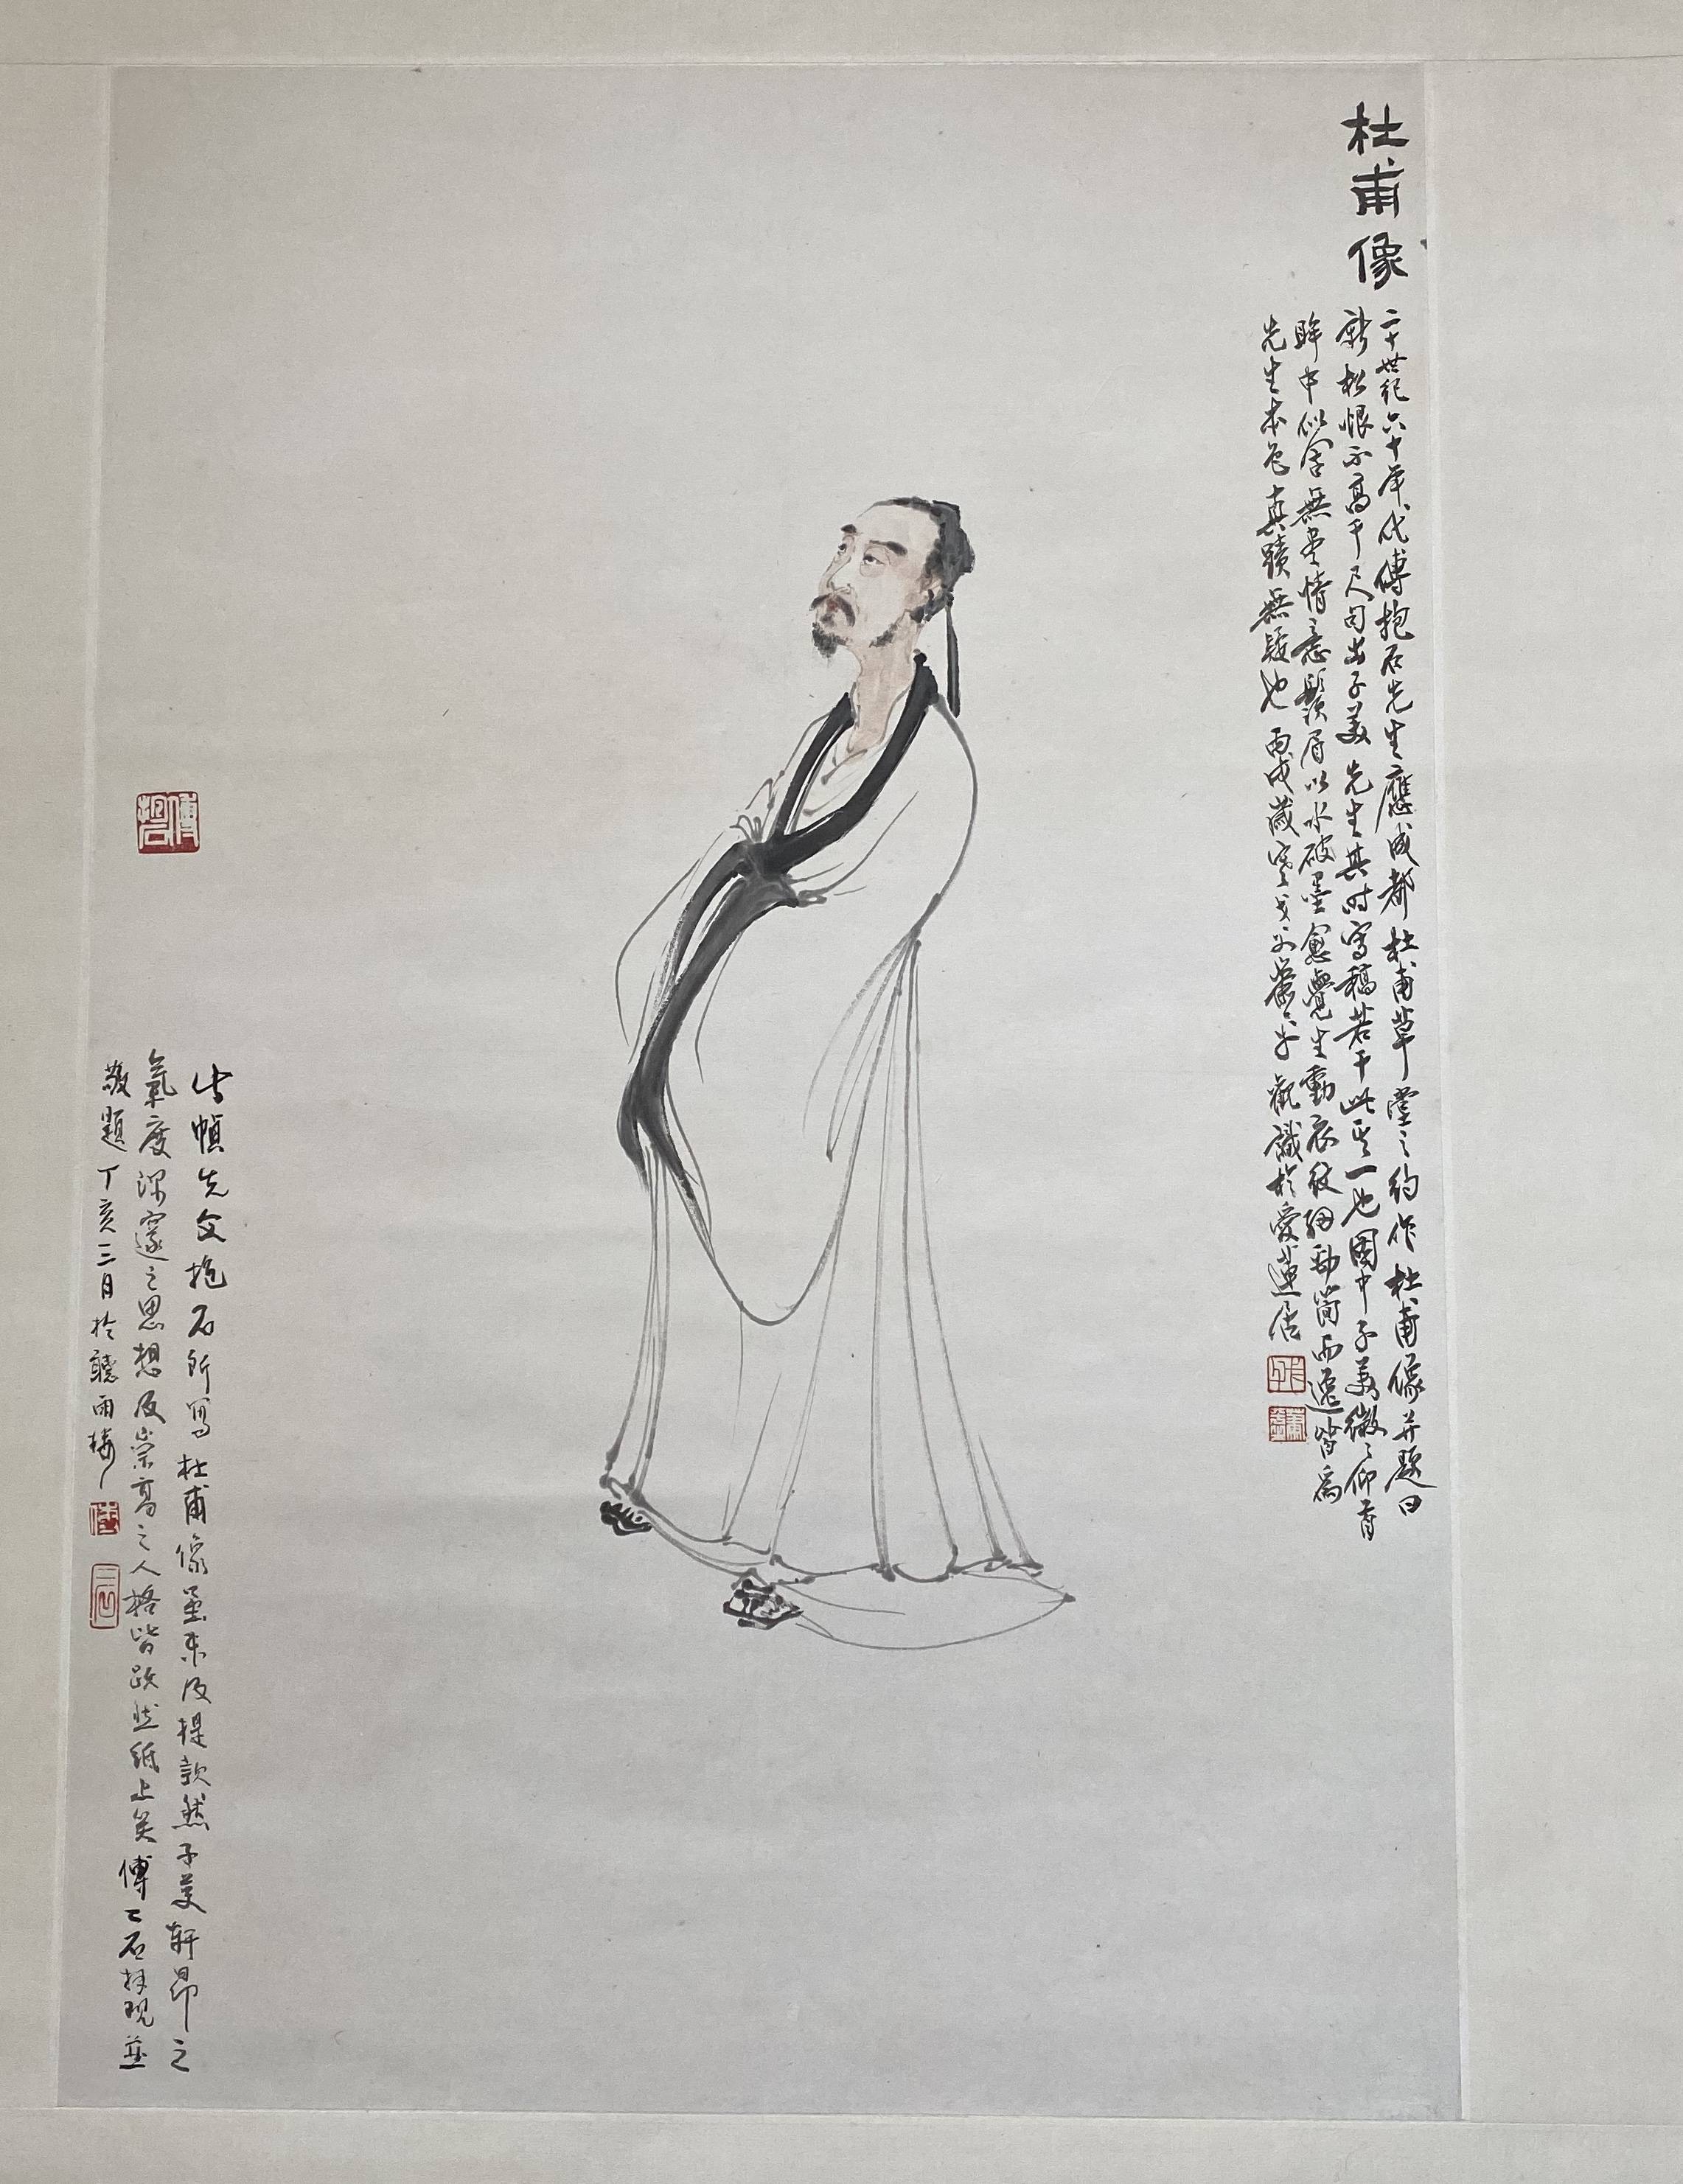 杜甫像
二十世紀六十年代傅抱石先生應成都杜甫草堂之約作杜甫像并題曰
新松恨不高千尺句出子美先生其時寫稿若干此其一也圖中子美微微仰首
眸中似含無盡情意鬚眉以水破墨愈覺生動衣紋細勁簡而逸皆為
先生本色真蹟無疑也丙戌歲寒 觀識於愛蓮居
傅抱石
此幀先父抱石所寫杜甫像雖未及提款然子美軒昂之
氣度深邃之思想及崇高之人格皆躍然紙上矣傅二石拜觀並
敬題丁亥三月於聽雨樓
傅
二石